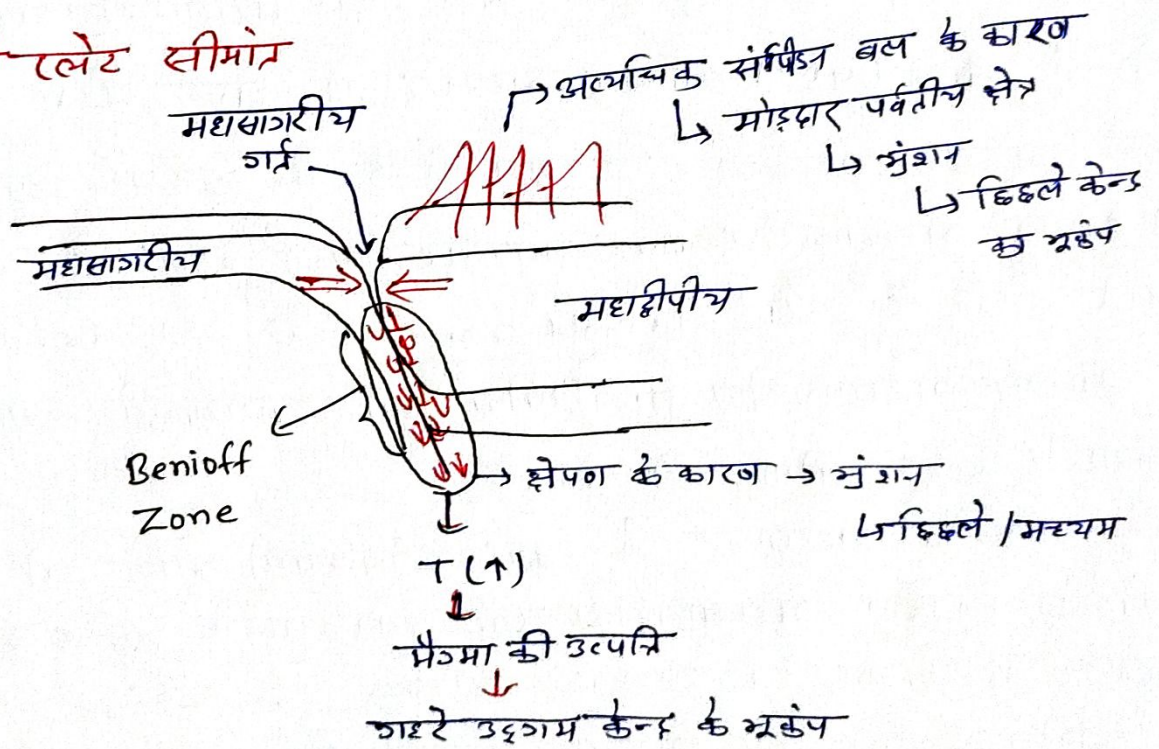 प्लेट सीमांत
महासागरीय
गर्त
अत्यधिक संपीडन बल के कारण
मोड़दार पर्वतीय क्षेत्र
भ्रंशन
छिछले केन्द्र
का भूकंप
महासागरीय
महाद्वीपीय
Benioff
Zone
क्षेपण के कारण → भ्रंशन
छिछले / मध्यम
T (↑)
मैग्मा की उत्पत्ति
गहरे उद्गम केन्द्र के भूकंप